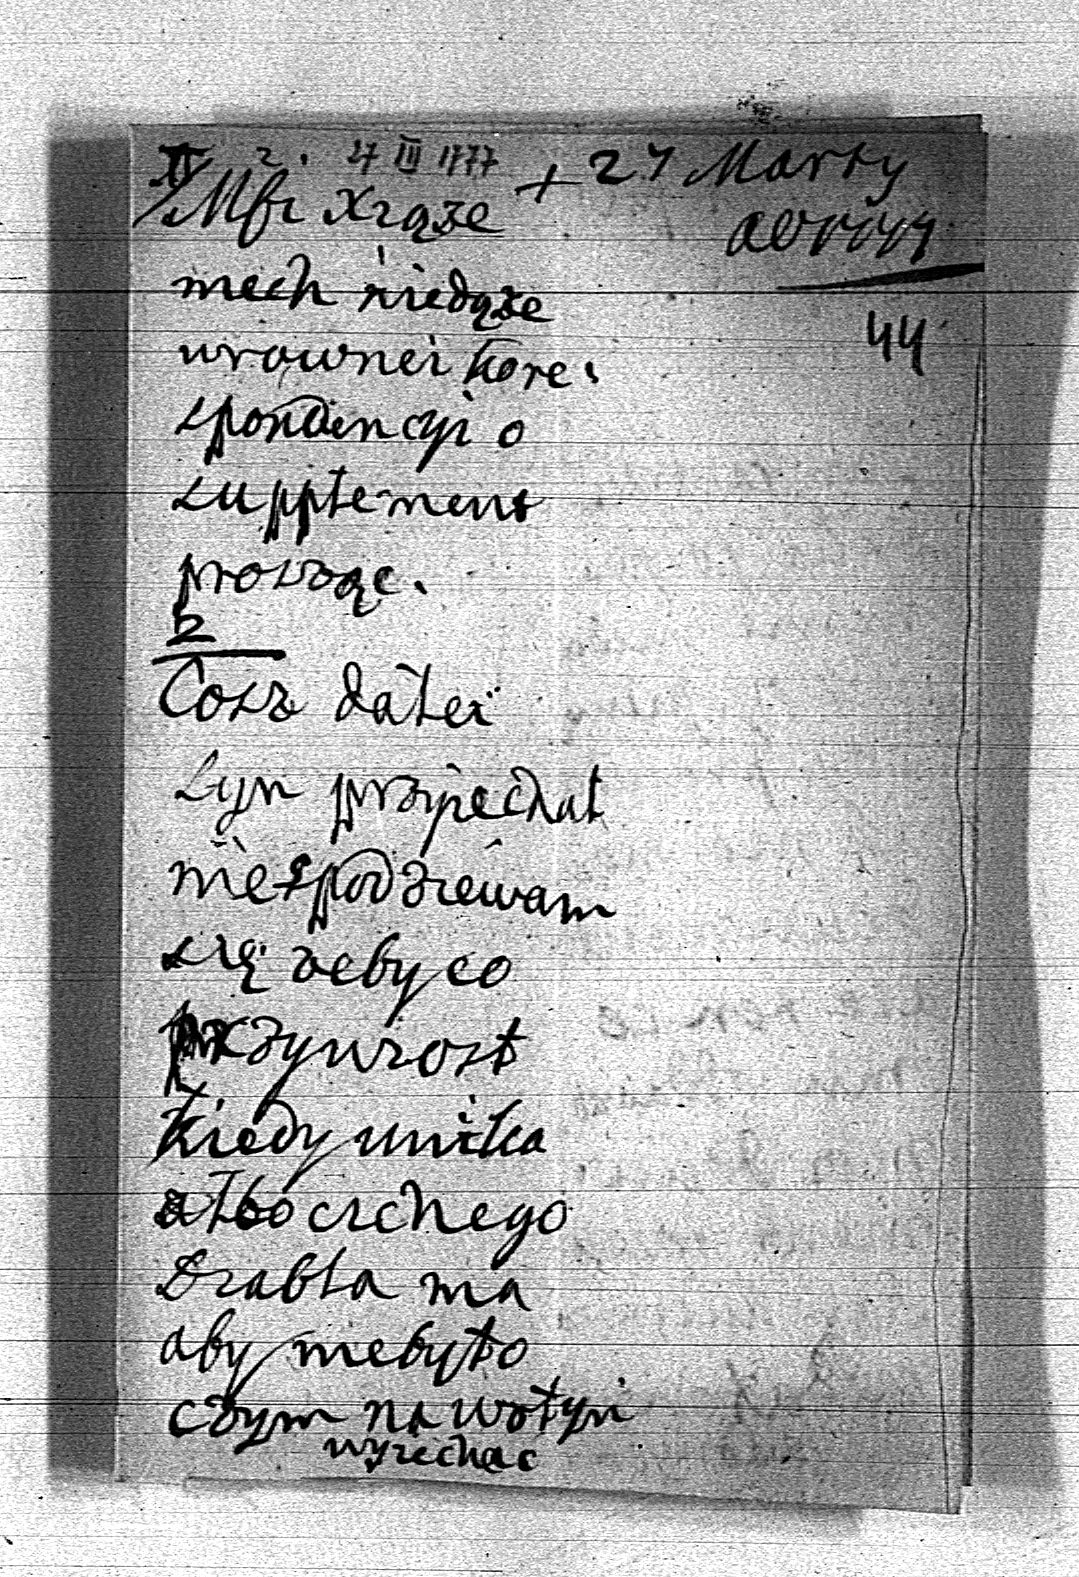 2. 27 III 1777 + 27 Marty
Mści Xiąże
niech niedąże
wrownei kore.
spondencyi o
supplement
prosząc.
2
Cosz dałei
Syn przyiechał
niespodziewam
się żeby co
przywiozł
Kiedy unika
albo cichego
Diabła ma
aby niebyło
czym na wołyń
wyiechac
44